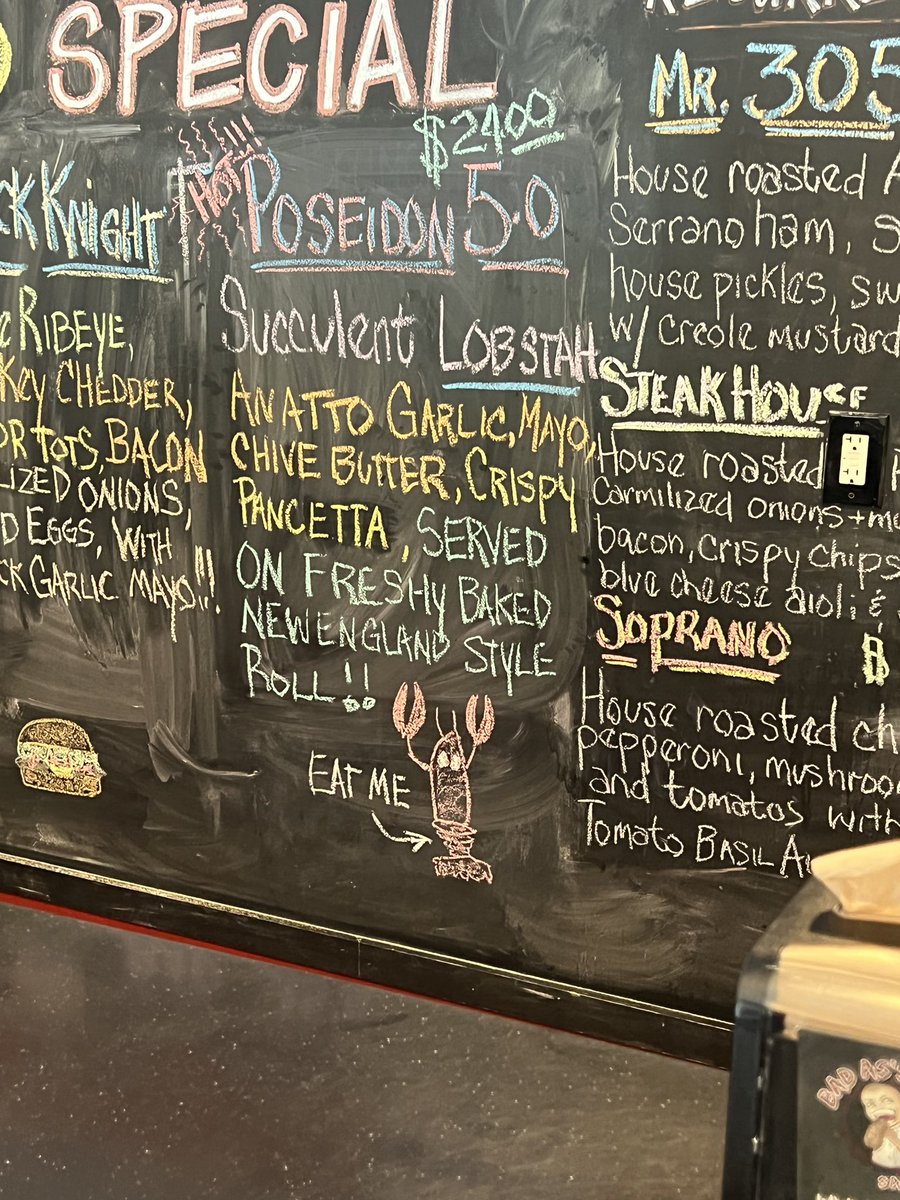 SPECIAL
$24.00
KNIGHT
RIBEYE,
KEY CHEDDER,
TOTS, BACON
LIZED ONIONS,
EGGS, WITH
GARLIC MAYO!!!
HOT!!!
POSEIDON 5.0
Succulent LOBSTAH
ANATTO GARLIC, MAYO,
CHIVE BUTTER, CRISPY
PANCETTA, SERVED
ON FRESHY BAKED
NEW ENGLAND STYLE
ROLL!!
EAT ME
MR. 305
House roasted
Serrano ham,
house pickles,
W/ creole mustard
STEAK HOUSE
House roasted
Carmilized onions +
bacon, crispy chips
blue cheese aioli &
SOPRANO
$
House roasted
pepperoni,
and tomatos with
Tomato BASIL
BAD AS'S